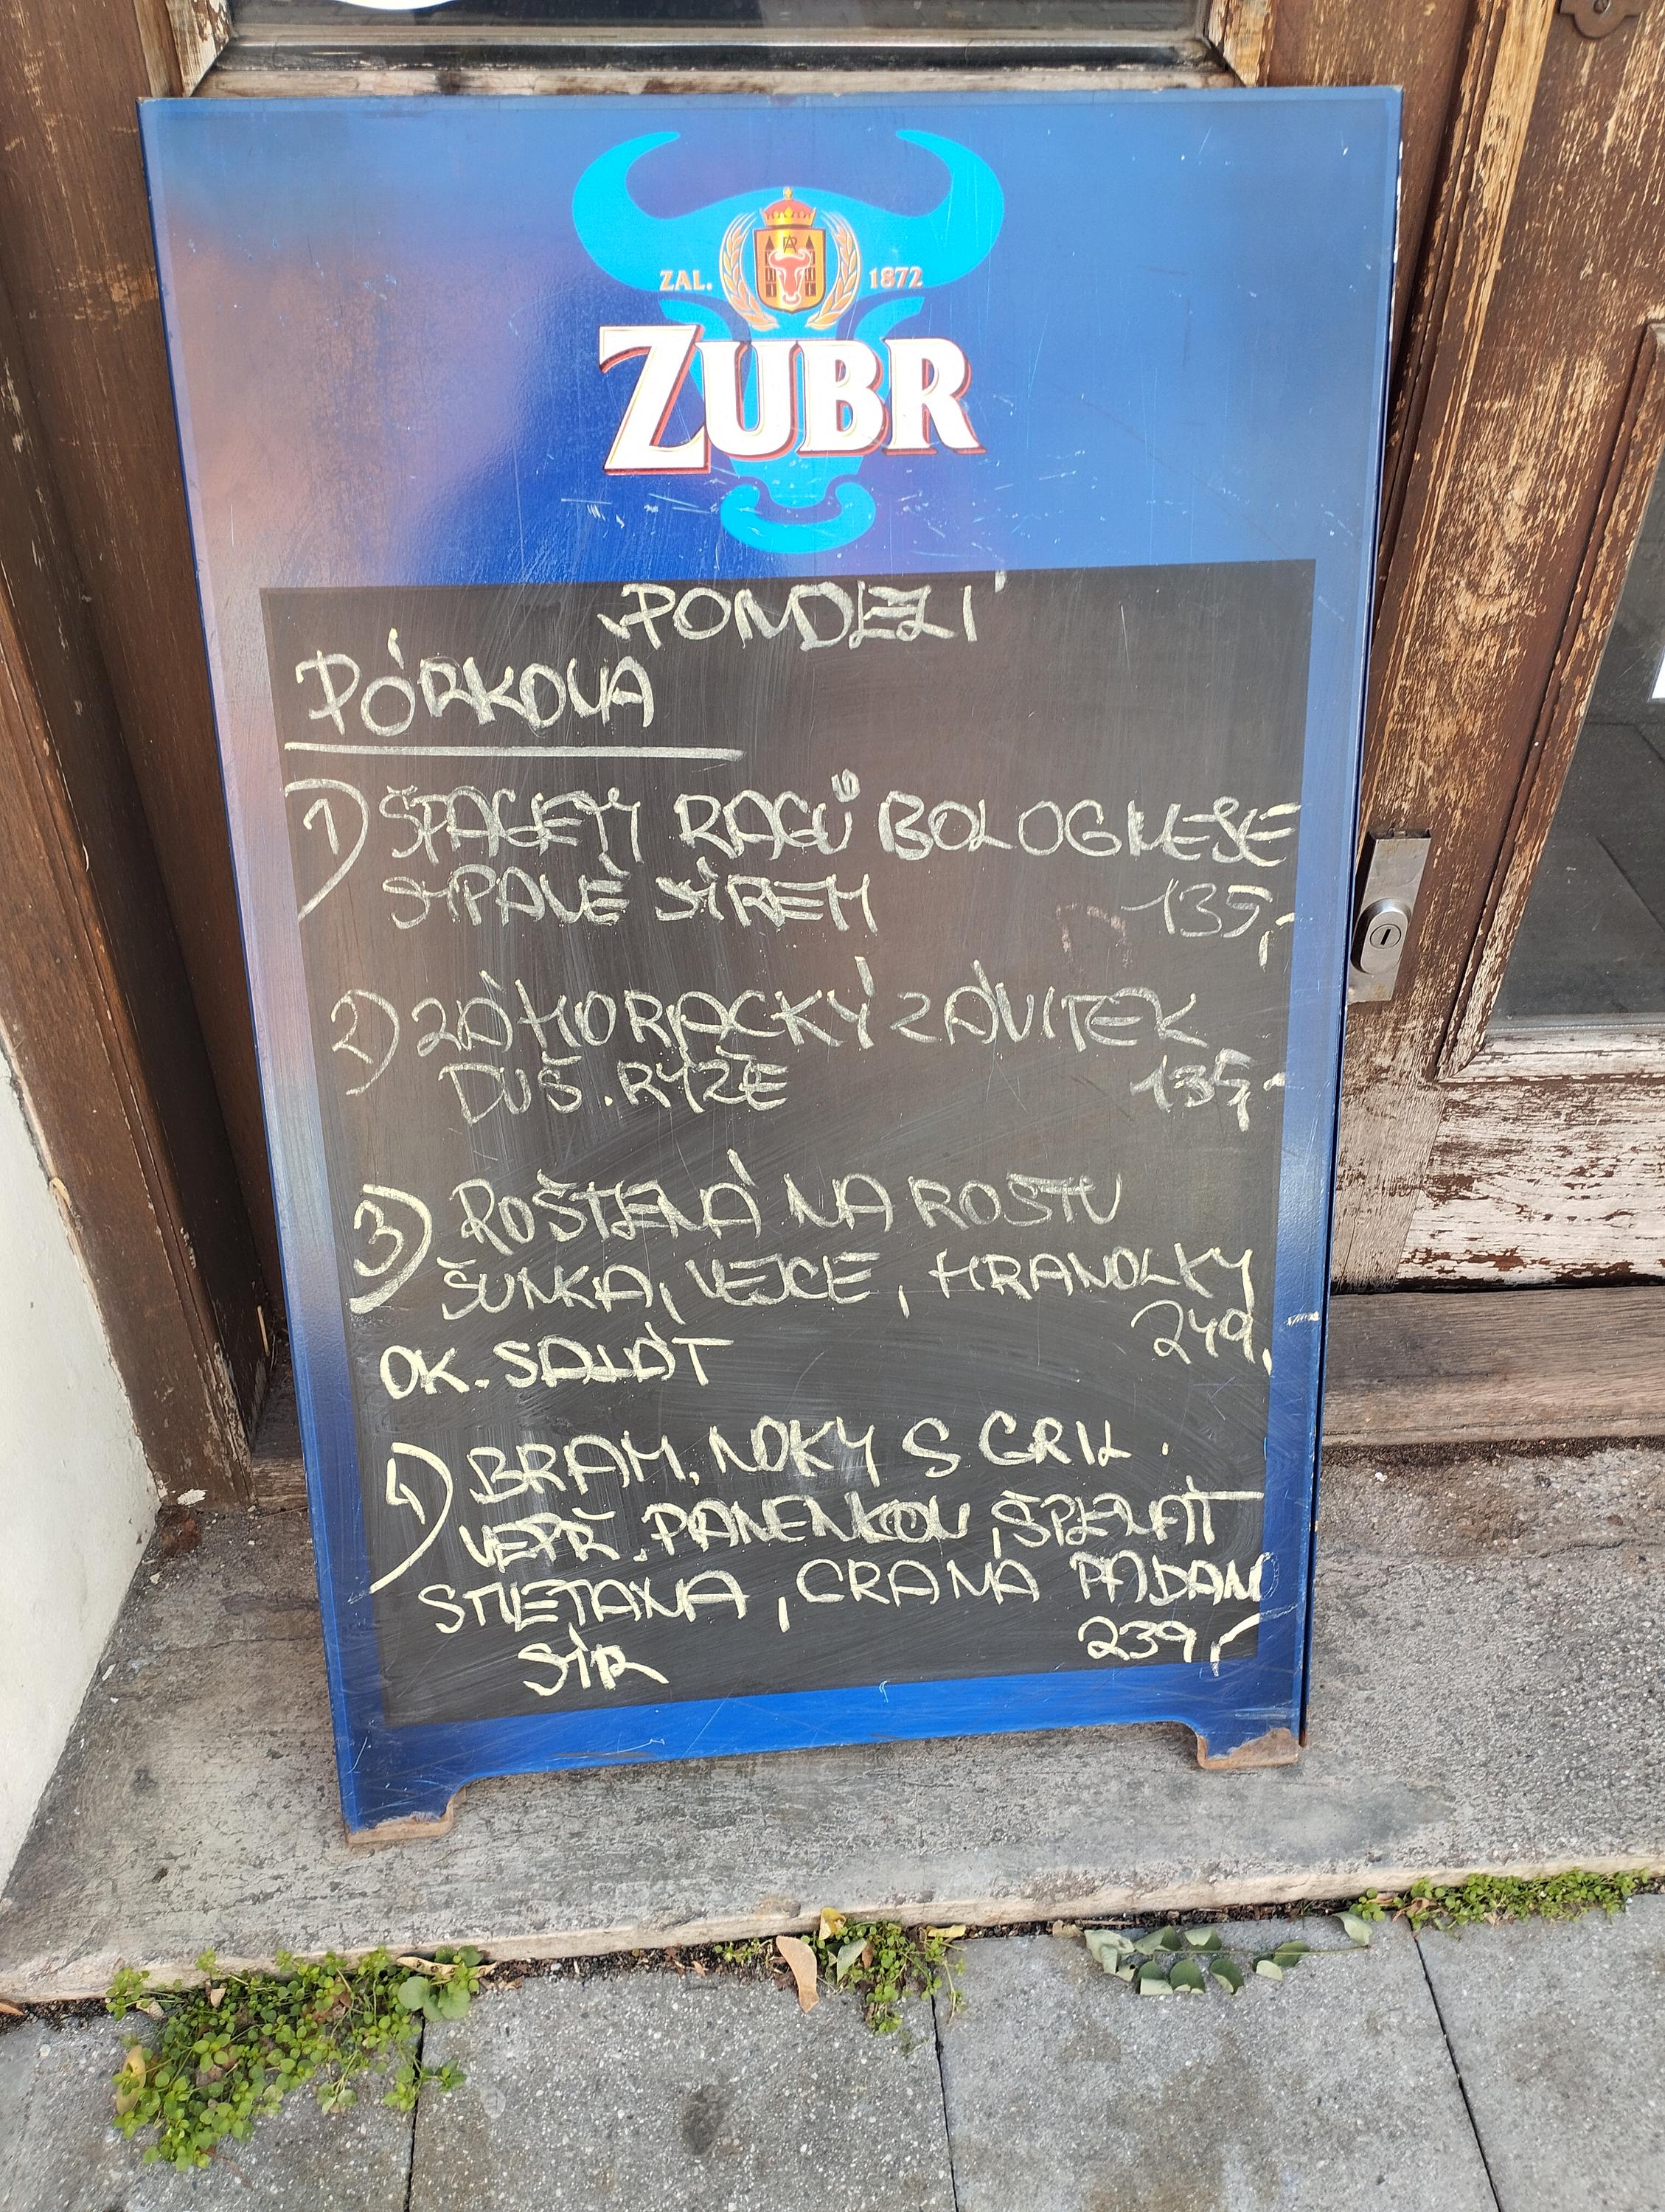 ZAL. 1872
ZUBR
PONDELÍ
PÓRKOVA
1) ŠPAGETY RAGŮ BOLOGNESE
SYPANÉ SÝREM 135,-
2) ZÁHORACKÝ ZÁVITEK
DUŠ. RÝŽE 135,-
3) ROŠTĚNÁ NA ROŠTU
ŠUNKA, VEJCE, HRANOLKY
249,
OK. SALÁT
4) BRAM. NOKY S GRIL.
VEPŘ. PANENKOU, ŠPENÁT
SMETANA, GRANA PADANO
SÝR 239,-